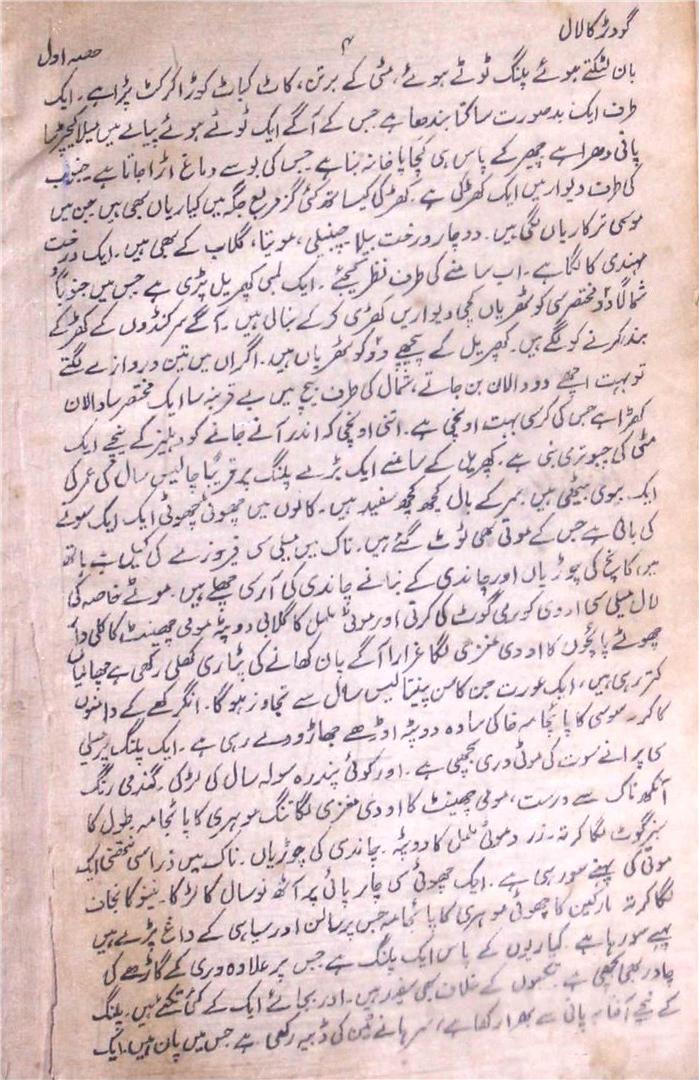 گودڑ کا لال
۴
حصہ اول
بان لٹکتے ہوئے پلنگ ٹوٹے ہوئے، مٹی کے برتن، کاٹ کباٹ کوڑا کرکٹ پڑا ہے۔ ایک
طرف ایک بدصورت سا کتا بندھا ہے جس کے آگے ایک ٹوٹے ہوئے پیالے میں میلا کچیڑ سا
پانی دھرا ہے چھپر کے پاس ہی کچا پاخانہ بنا ہے جس کی بو سے دماغ اڑا جاتا ہے جنوب
کی طرف دیوار میں ایک کھڑکی ہے۔ کھڑکی کیساتھ کئی گز مربع جگہ میں کیاریاں بھی ہیں جن میں
موسمی ترکاریاں لگی ہیں۔ دو چار درخت بیلا چنبیلی، موتیا، گلاب کے بھی ہیں۔ ایک درخت
مہندی کا لگا ہے۔ اب سامنے کی طرف نظر کیجئے۔ ایک لمبی کھپریل پڑی ہے جس میں جنوباً
شمالاً دو مختصر سی کوٹھریاں کچی دیواریں کھڑی کر کے بنا لی ہیں۔ آگے سرکنڈوں کے کھڑکے
بند کرنے کو لگے ہیں۔ کھپریل کے پیچھے دو کوٹھریاں ہیں۔ اگر ان میں تین دروازے لگتے
تو بہت اچھے دو دالان بن جاتے، شمال کی طرف بیچ میں بے قرینہ سا ایک مختصر سا دالان
کھڑا ہے جس کی کرسی بہت اونچی ہے۔ اتنی اونچی کہ اندر آنے جانے کو دہلیز کے نیچے ایک
مٹی کی چبوتری بنی ہے۔ کھپریل کے سامنے ایک بڑے پلنگ پر قریباً چالیس سال کی عمر کی
ایک بیوی بیٹھی ہیں سر کے بال کچھ کچھ سفید ہیں۔ کانوں میں چھوٹی چھوٹی ایک ایک سونے
کی بالی ہے جس کے موتی بھی ٹوٹ گئے ہیں۔ ناک میں میلی سی فیروزے کی کیل ہے ہاتھ
میں کانچ کی چوڑیاں اور چاندی کے بنانے چاندی کی آرسی چھلے ہیں۔ موٹے خاصہ کی
لال میلی سی اودی کور می گوٹ کی کرتی اور موٹی ململ کا گلابی دوپٹہ مومی چھینٹ کا کلی دار
چھوٹے پائچوں کا اودی مغزی لگا غرارا آگے پان کھانے کی پٹاری کھلی رکھی ہے چھالیاں
کتر رہی ہیں، ایک عورت جن کا سن پینتالیس سال سے تجاوز ہوگا۔ انگرکھے کے دامنوں
کا کرتہ موسی کا پائجامہ خاکی سادہ دوپٹہ اوڑھے جھاڑو دے رہی ہے۔ ایک پلنگ پر میلی
سی پرانے سوت کی موٹی دری بچھی ہے۔ اور کوئی پندرہ سولہ سال کی لڑکی۔ گندمی رنگ
آنکھ ناک سے درست، مومی چھینٹ کا اودی مغزی لگا تنگ موہری کا پائجامہ طول کا
سبز گوٹ لگا کرتہ۔ زرد موٹی ململ کا دوپٹہ۔ چاندی کی چوڑیاں۔ ناک میں ذرا سی نتھنی ایک
موتی کی پہنے سو رہی ہے۔ ایک چھوٹی سی چارپائی پر آٹھ نو سال کا لڑکا۔ نینو کا نجاف
لگا کرتہ مارکین کا چھوٹی موہری کا پائجامہ جس پر سالن اور سیاہی کے داغ پڑے ہیں
پہنے سو رہا ہے کیاریوں کے پاس ایک پلنگ ہے جس پر علاوہ دری کے گاڑھے کی
چادر بھی بچھی ہے تکیوں کے غلاف بھی سفید ہیں۔ اور بجائے ایک کے کئی تکئے ہیں۔ پلنگ
کے نیچے آفتابہ پانی سے بھرا رکھا ہے، سرہانے ٹین کی ڈبیہ رکھی ہے جس میں پان ہیں۔ ایک